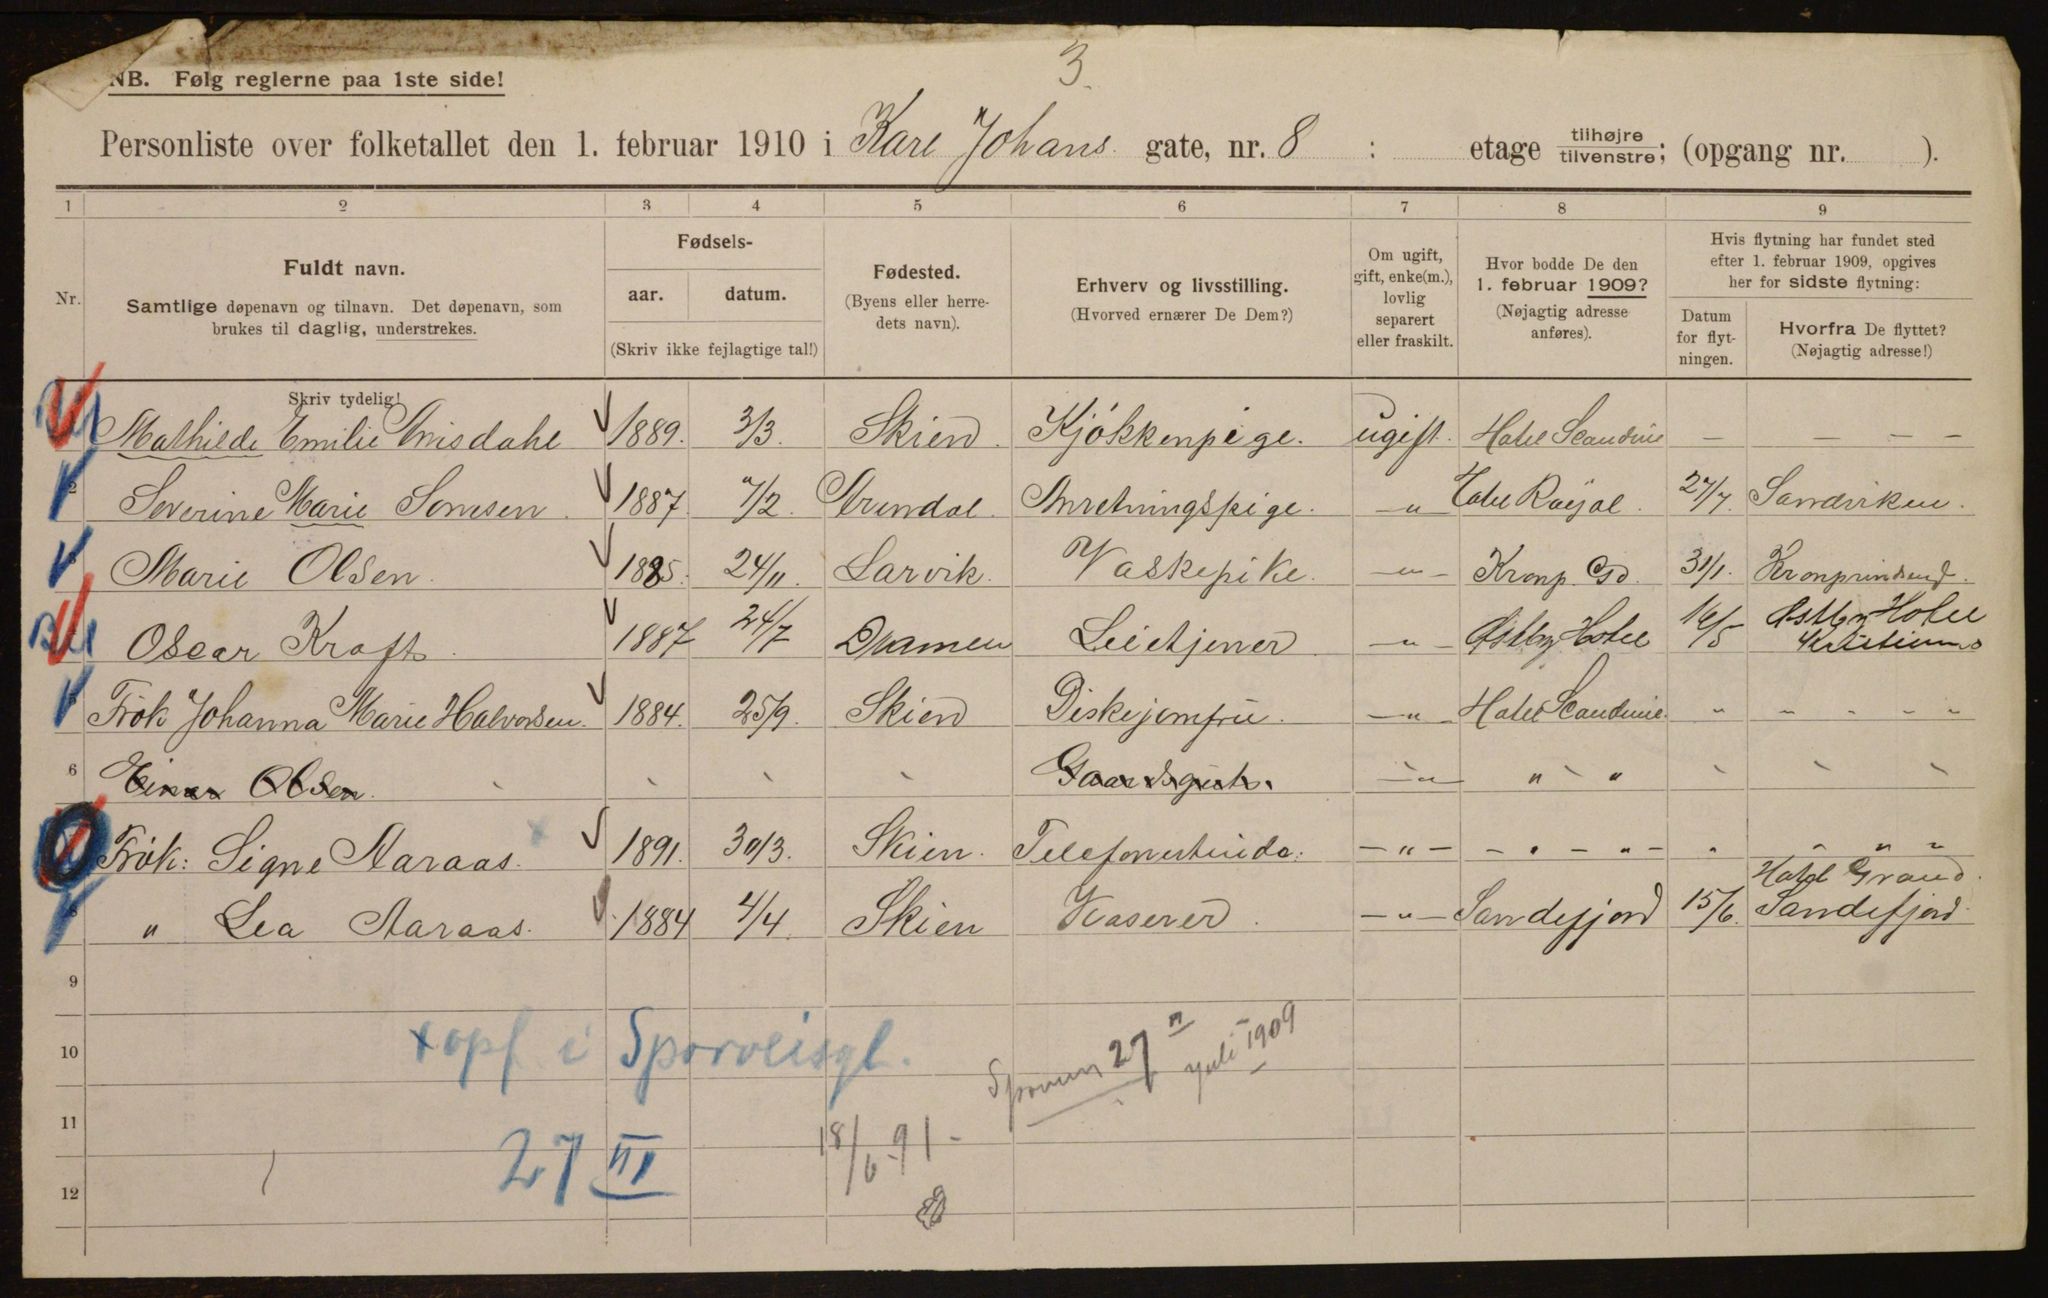 3
NB. Følg reglerne paa 1ste side!
Personliste over folketallet den 1. februar 1910 i Karl Johans gate, nr. 8 : etage tilhøjre tilvenstre; (opgang nr. ).
1 2 3 4 5 6 7 8 9
Nr.
Fuldt navn.
Samtlige døpenavn og tilnavn. Det døpenavn, som
brukes til daglig, understrekes.
Fødsels-
aar. datum.
(Skriv ikke fejlagtige tal!)
Fødested.
(Byens eller herre-
dets navn).
Erhverv og livsstilling.
(Hvorved ernærer De Dem?)
Om ugift,
gift, enke(m.),
lovlig
separert
eller fraskilt.
Hvor bodde De den
1. februar 1909?
(Nøjagtig adresse
anføres).
Hvis flytning har fundet sted
efter 1. februar 1909, opgives
her for sidste flytning:
Datum
for flyt-
ningen.
Hvorfra De flyttet?
(Nøjagtig adresse!)
Skriv tydelig!
Mathilde Emilie 1889. 3/3. Skien. Kjøkkenpige. ugift. Hotel Scandinie — — — —
2 Severine Marie 1887. 7/2. Arendal. Anretningspige. —"— Hotel Royal. 27/7. Sandviken.
3 Marie Olsen. 1885. 24/11. Larvik. Vaskepike. —"— Kronp. Gd. 31/1. Kronprindsend.
Oscar Kraft. 1887 24/7 Dramen Leietjener —"— Østby Hotel 16/5 Østby Hotel
Frøk Johanna Marie Halvorsen. 1884. 25/9. Skien Diskejomfru. —"— Hotel Scandinie. " " " " "
6 Einar Olsen. —"— " "
Frøk: Signe Aaraas. 1891. 30/3. Skien. Telefonistinde. —"— — " — " — " " " "
8 " Lea Aaraas. 1884 4/4. Skien Kaserer. —"— Sandefjord 15/6. Hotel Grand. Sandefjord.
9
10
11
12
x opf i Sporveisgt.
27 III
27 juli 1909
18/6 91 -